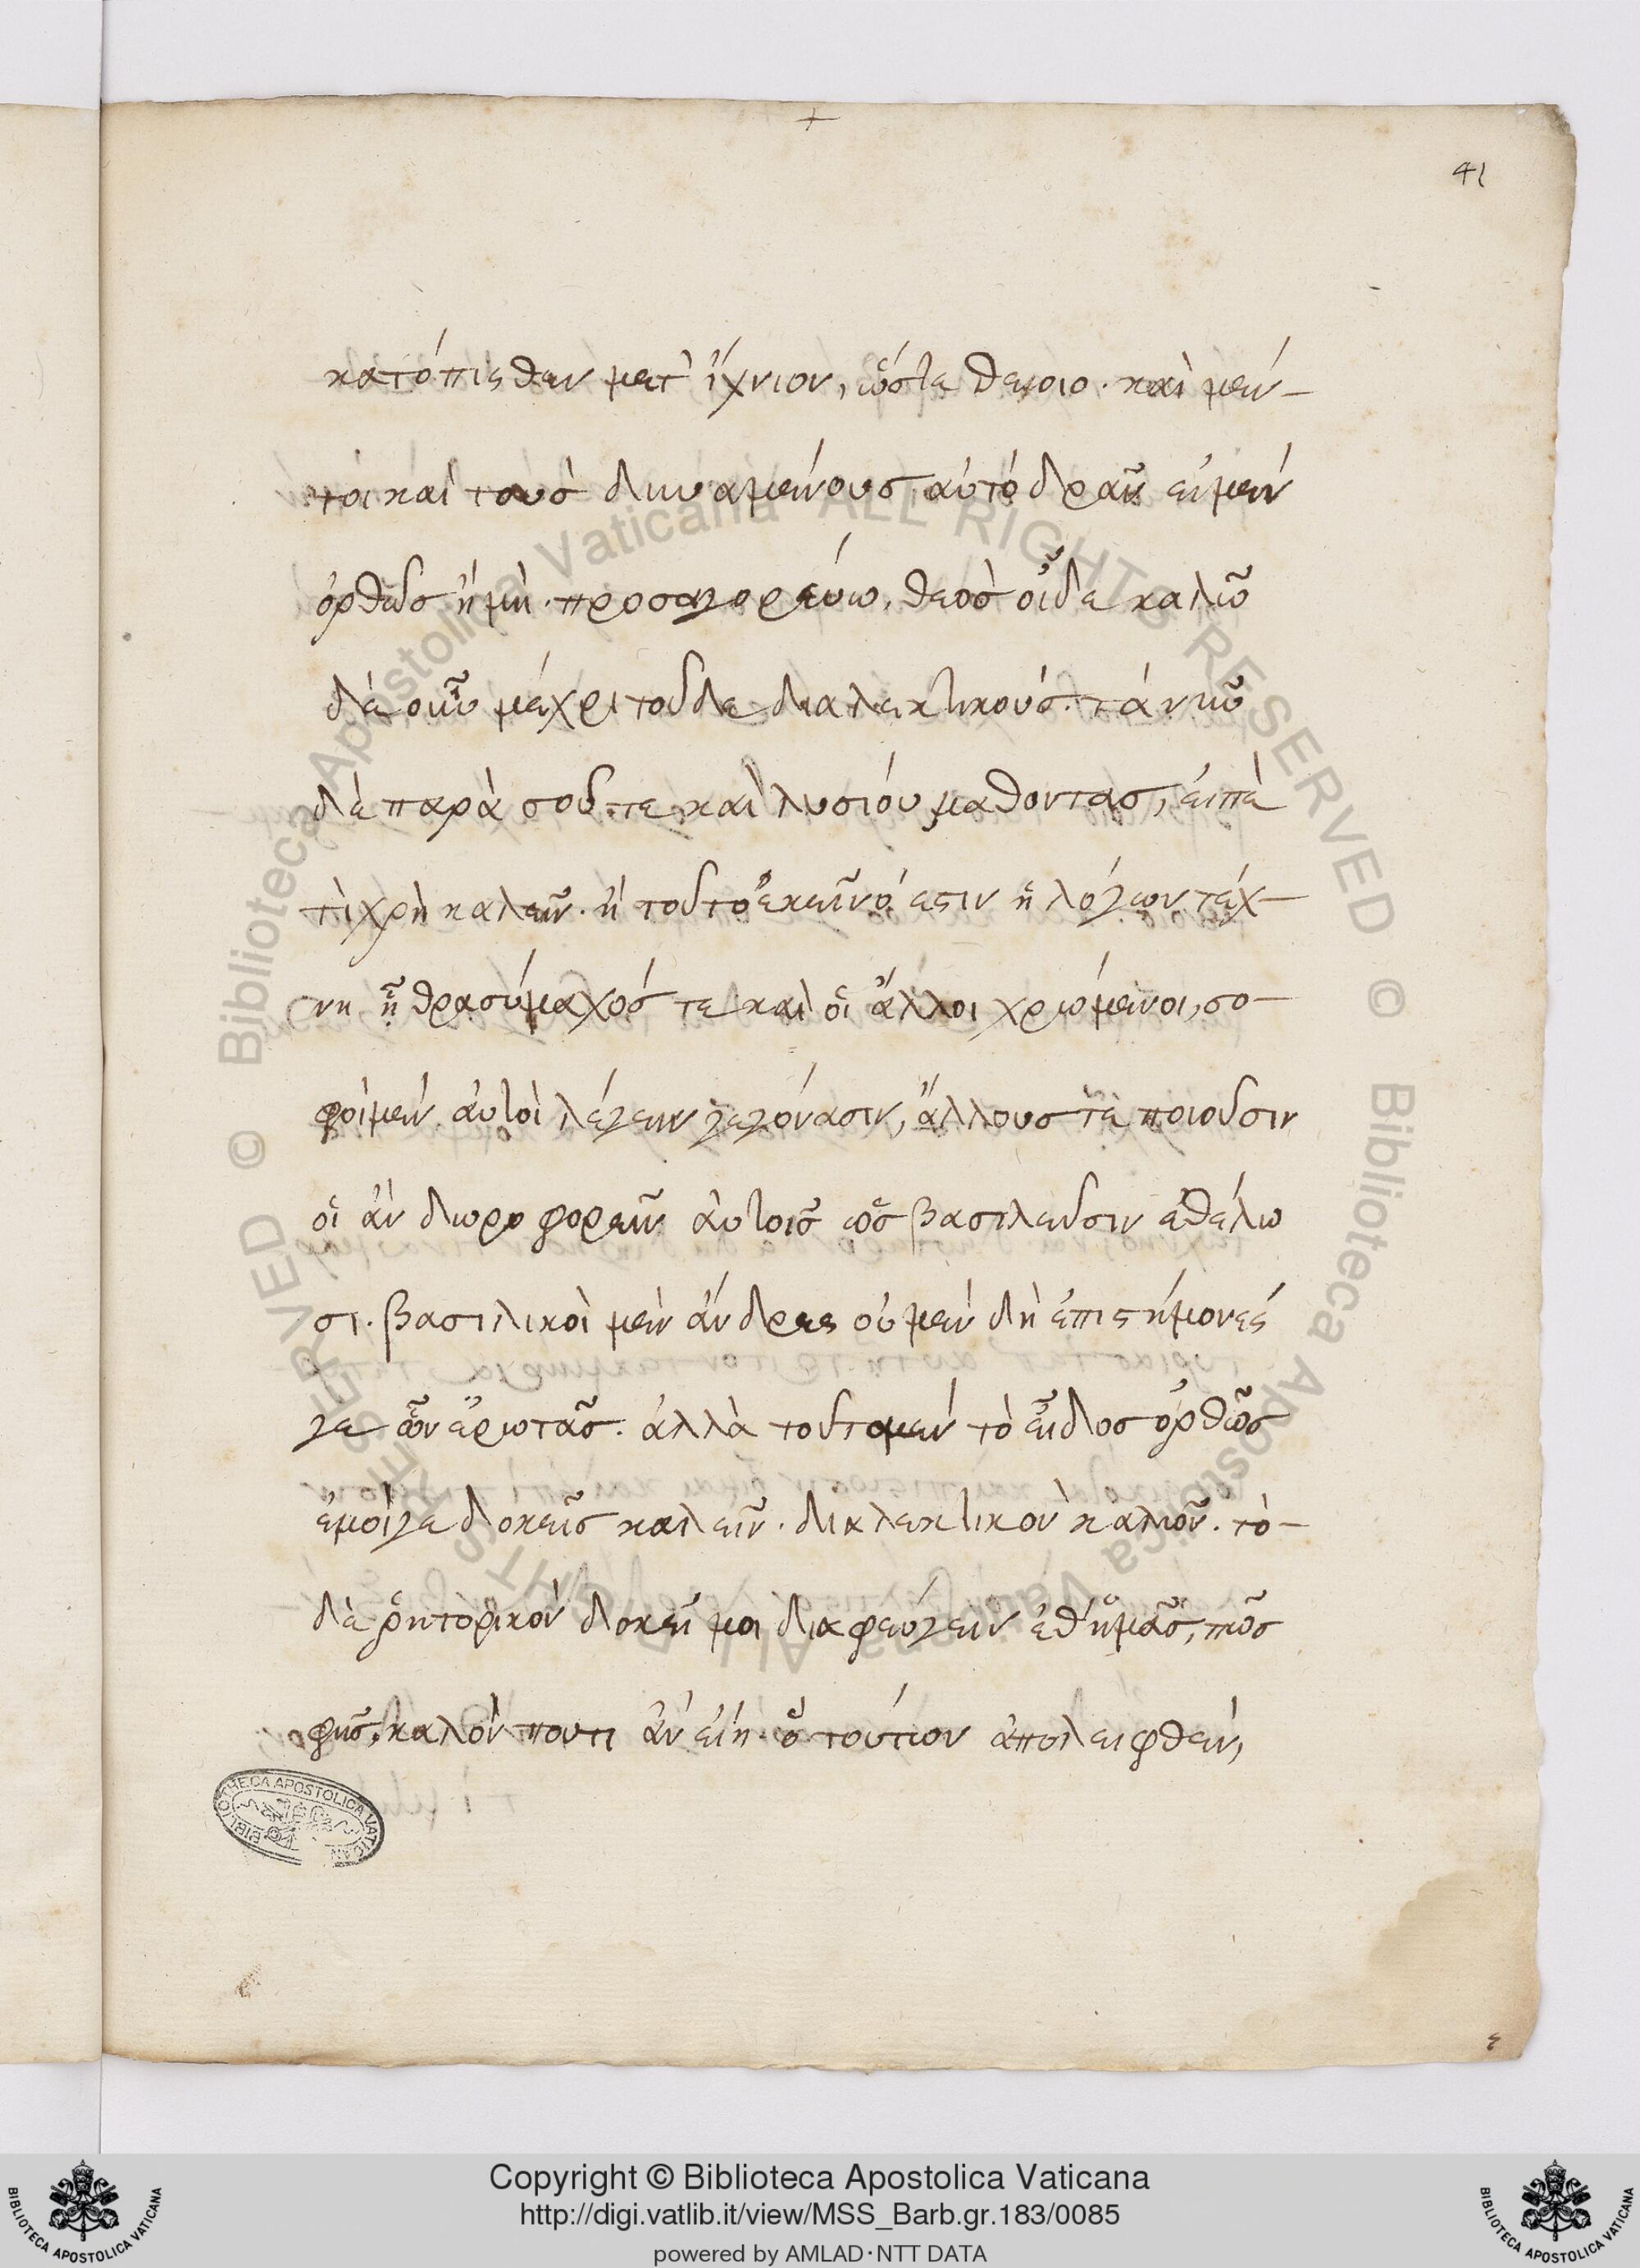 41
κατόπισθεν μετ' ἴχνιον, ὥστε θεοῖο. καὶ μέν-
τοι καὶ τοὺσ δυναμένουσ αὐτό δρᾶν εἰ μὲν
ὀρθῶσ ἢ μὴ. προσαγορεύω, θεὸσ οἶδε καλῶ
δὲ οὖν μέχρι τοῦδε διαλεκτικούσ. τά νῦν
δὲ παρὰ σοῦ τε καὶ λυσίου μαθοντασ, εἰπὲ
τὶ χρὴ καλεῖν. ἢ τοῦτο ἐκεῖνό εστιν ἡ λόγων τέχ-
νη ᾗ θρασύμαχόσ τε καὶ οἱ ἄλλοι χρώμενοι, σο-
φοὶ μέν αὐτοὶ λέγειν γεγόνασιν, ἄλλουσ τὲ ποιοῦσιν
οἳ ἀν δωροφορεῖν αὐτοῖσ ὡσ βασιλεῦσιν ἐθέλω
σι. βασιλικοὶ μὲν ἄνδρες οὐ μὲν δὴ ἐπιστήμονές
γε ὧν ἐρωτᾶσ. ἀλλὰ τοῦτο μέν τὸ εἶδοσ ὀρθῶσ
ἐμοί γε δοκεῖσ καλεῖν. διαλεκτικὸν καλῶν. τὸ-
δὲ ῥητορικόν δοκεῖ μοι διαφεύγειν ἐθ' ἡμᾶσ, πῶσ
φῄσ, καλόν που τι ἀν εἴη ὃ τούτων ἀπολειφθέν,
BIBLIOTHECA APOSTOLICA VATICAN
© Biblioteca Apostolica Vaticana ALL RIGHTS RESERVED
© Biblioteca Apostolica Vaticana ALL RIGHTS RESERVED
Copyright © Biblioteca Apostolica Vaticana
http://digi.vatlib.it/view/MSS_Barb.gr.183/0085
powered by AMLAD·NTT DATA
BIBLIOTECA APOSTOLICA VATICANA
BIBLIOTECA APOSTOLICA VATICANA